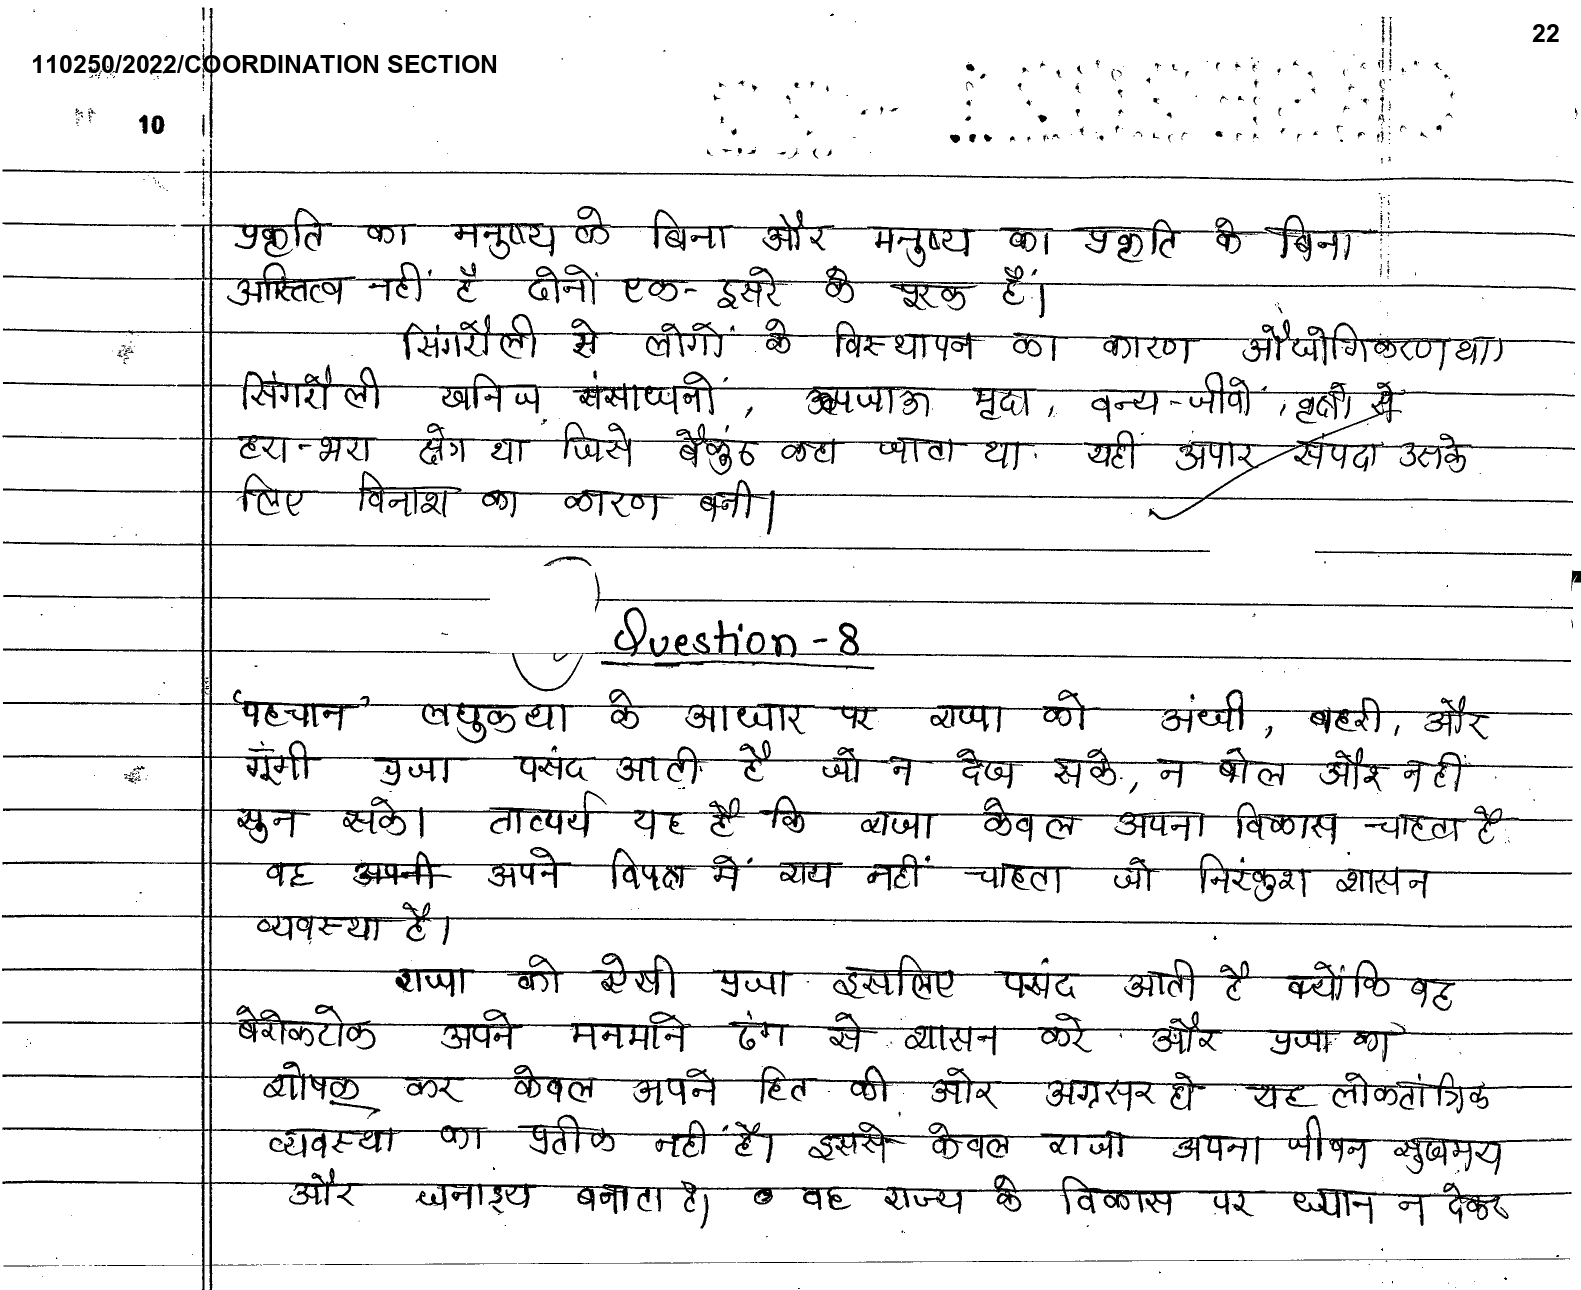 22
110250/2022/COORDINATION SECTION
10
प्रकृति का मनुष्य के बिना और मनुष्य का प्रकृति के बिना
अस्तित्व नहीं है दोनों एक-दूसरे के पूरक हैं।
सिंगरौली से लोगों के विस्थापन का कारण औद्योगिकरण था।
सिंगरौली खनिज संसाधनों, उपजाऊ मृदा, वन्य-जीवों, वृक्षों से
हरा-भरा क्षेत्र था जिसे बैकुंठ कहा जाता था. यही अपार संपदा उसके
लिए विनाश का कारण बनी।
Question-8
'पहचान' लघुकथा के आधार पर राजा को अंधी, बहरी, और
गूंगी प्रजा पसंद आती है जो न देख सके, न बोल और नही
सुन सके। तात्पर्य यह है कि राजा केवल अपना विकास चाहता है
वह अपनी अपने विपक्ष में राय नहीं चाहता जो निरंकुश शासन
व्यवस्था है।
राजा को ऐसी प्रजा इसलिए पसंद आती है क्योंकि वह
बेरोकटोक अपने मनमाने ढंग से शासन करे और प्रजा का
शोषक कर केवल अपने हित की ओर अग्रसर हो यह लोकतांत्रिक
व्यवस्था का प्रतीक नहीं है। इससे केवल राजा अपना जीवन सुखमय
और धनाड्य बनाता है। वह राज्य के विकास पर ध्यान न देकर